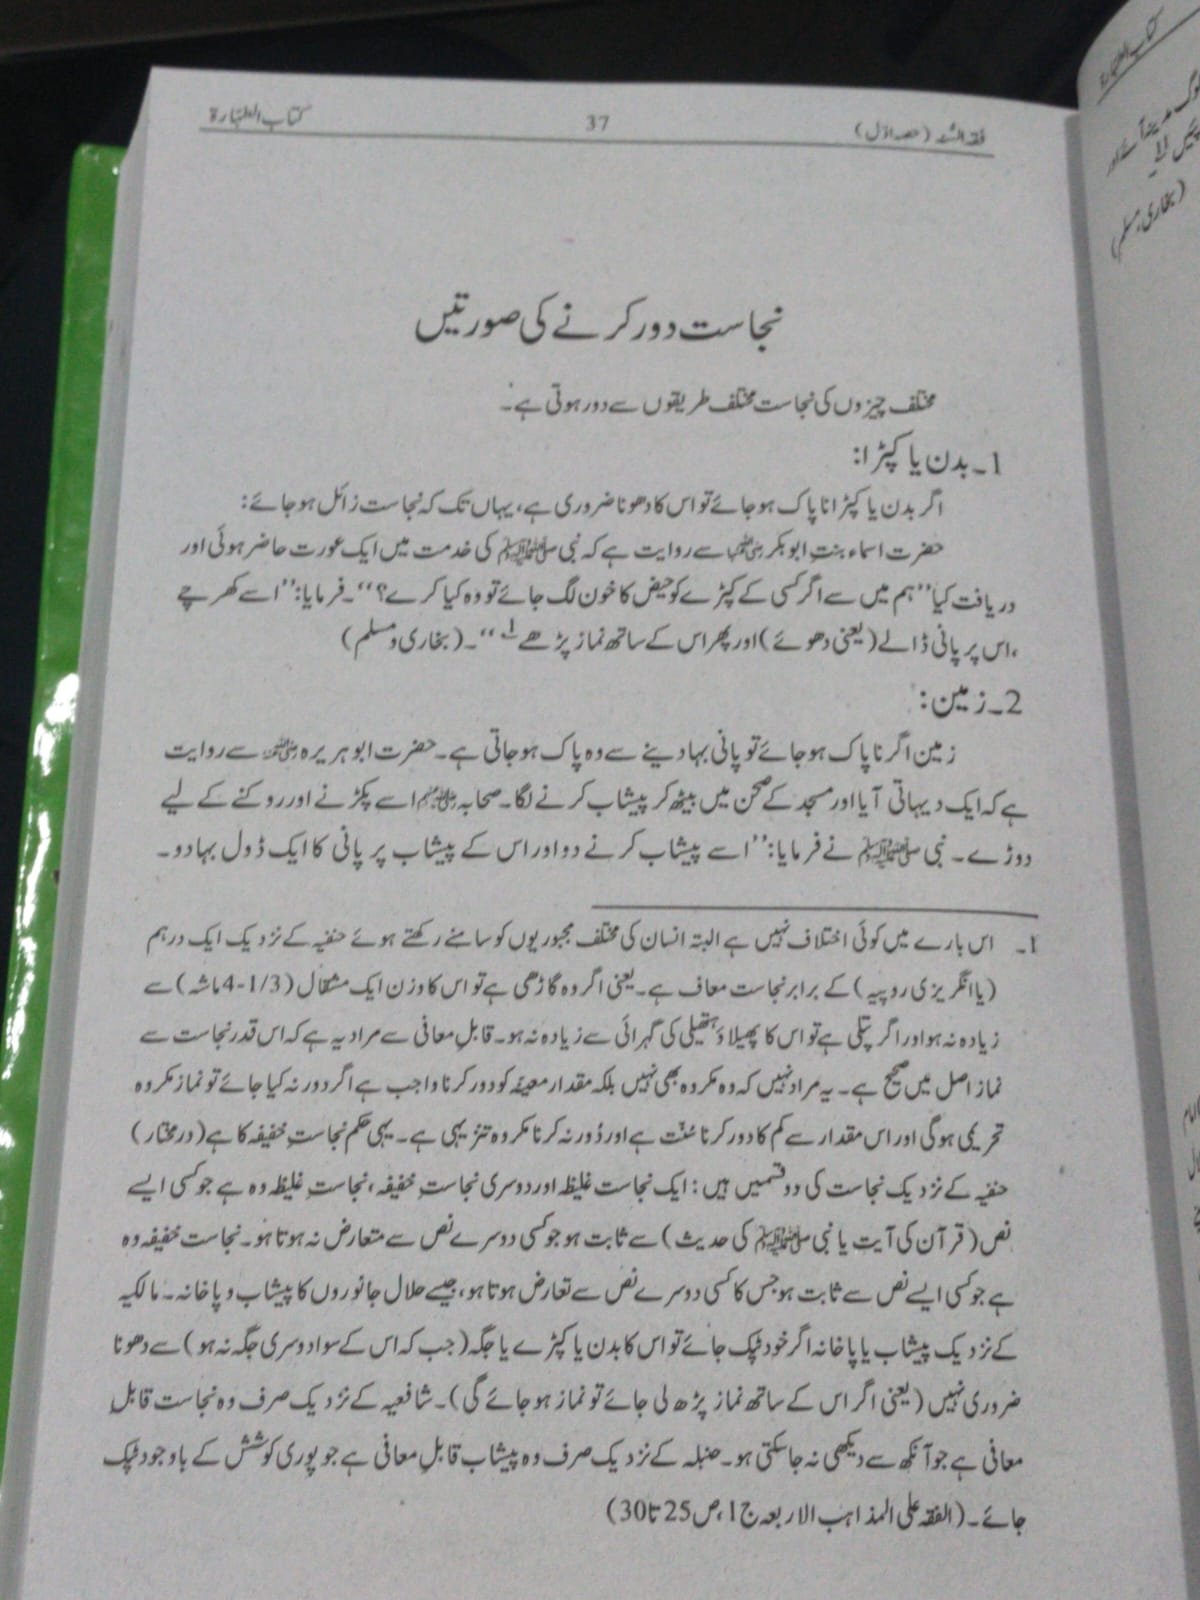 فقہ السنہ (حصہ اوّل) 37 کتاب الطہارۃ
نجاست دور کرنے کی صورتیں
مختلف چیزوں کی نجاست مختلف طریقوں سے دور ہوتی ہے۔
1۔ بدن یا کپڑا:
اگر بدن یا کپڑا ناپاک ہو جائے تو اس کا دھونا ضروری ہے، یہاں تک کہ نجاست زائل ہو جائے:
حضرت اسماء بنتِ ابوبکر رضی اللہ عنہا سے روایت ہے کہ نبی ﷺ کی خدمت میں ایک عورت حاضر ہوئی اور
دریافت کیا ”ہم میں سے اگر کسی کے کپڑے کو حیض کا خون لگ جائے تو وہ کیا کرے؟“۔ فرمایا: ”اسے کھرچے
،اس پر پانی ڈالے (یعنی دھوئے) اور پھر اس کے ساتھ نماز پڑھے ۱“۔ (بخاری و مسلم)
2۔ زمین:
زمین اگر ناپاک ہو جائے تو پانی بہا دینے سے وہ پاک ہو جاتی ہے۔ حضرت ابو ہریرہ رضی اللہ عنہ سے روایت
ہے کہ ایک دیہاتی آیا اور مسجد کے صحن میں بیٹھ کر پیشاب کرنے لگا۔ صحابہ رضی اللہ عنہم اسے پکڑنے اور روکنے کے لیے
دوڑے۔ نبی ﷺ نے فرمایا: ”اسے پیشاب کرنے دو اور اس کے پیشاب پر پانی کا ایک ڈول بہا دو۔
1۔ اس بارے میں کوئی اختلاف نہیں ہے البتہ انسان کی مختلف مجبوریوں کو سامنے رکھتے ہوئے حنفیہ کے نزدیک ایک درہم
(یا انگریزی روپیہ) کے برابر نجاست معاف ہے۔ یعنی اگر وہ گاڑھی ہے تو اس کا وزن ایک مثقال (4-1/3 ماشہ) سے
زیادہ نہ ہو اور اگر پتلی ہے تو اس کا پھیلاؤ ہتھیلی کی گہرائی سے زیادہ نہ ہو۔ قابلِ معافی سے مراد یہ ہے کہ اس قدر نجاست سے
نماز اصل میں صحیح ہے۔ یہ مراد نہیں کہ وہ مکروہ بھی نہیں بلکہ مقدار معینہ کو دور کرنا واجب ہے اگر دور نہ کیا جائے تو نماز مکروہ
تحریمی ہو گی اور اس مقدار سے کم کا دور کرنا سُنّت ہے اور دُور نہ کرنا مکروہ تنزیہی ہے۔ یہی حکم نجاستِ خفیفہ کا ہے (درمختار)
حنفیہ کے نزدیک نجاست کی دو قسمیں ہیں: ایک نجاست غلیظہ اور دوسری نجاستِ خفیفہ، نجاستِ غلیظہ وہ ہے جو کسی ایسے
نص (قرآن کی آیت یا نبی ﷺ کی حدیث) سے ثابت ہو جو کسی دوسرے نص سے متعارض نہ ہوتا ہو۔ نجاست خفیفہ وہ
ہے جو کسی ایسے نص سے ثابت ہو جس کا کسی دوسرے نص سے تعارض ہوتا ہو، جیسے حلال جانوروں کا پیشاب و پاخانہ۔ مالکیہ
کے نزدیک پیشاب یا پاخانہ اگر خود ٹپک جائے تو اس کا بدن یا کپڑے یا جگہ (جب کہ اس کے سوا دوسری جگہ نہ ہو) سے دھونا
ضروری نہیں (یعنی اگر اس کے ساتھ نماز پڑھ لی جائے تو نماز ہو جائے گی)۔ شافعیہ کے نزدیک صرف وہ نجاست قابلِ
معافی ہے جو آنکھ سے دیکھی نہ جا سکتی ہو۔ حنبلہ کے نزدیک صرف وہ پیشاب قابلِ معافی ہے جو پوری کوشش کے باوجود ٹپک
جائے۔ (الفقہ علی المذاہب الاربعہ ج 1، ص 25 تا 30)
کتاب الطہارۃ
(بخاری، مسلم)